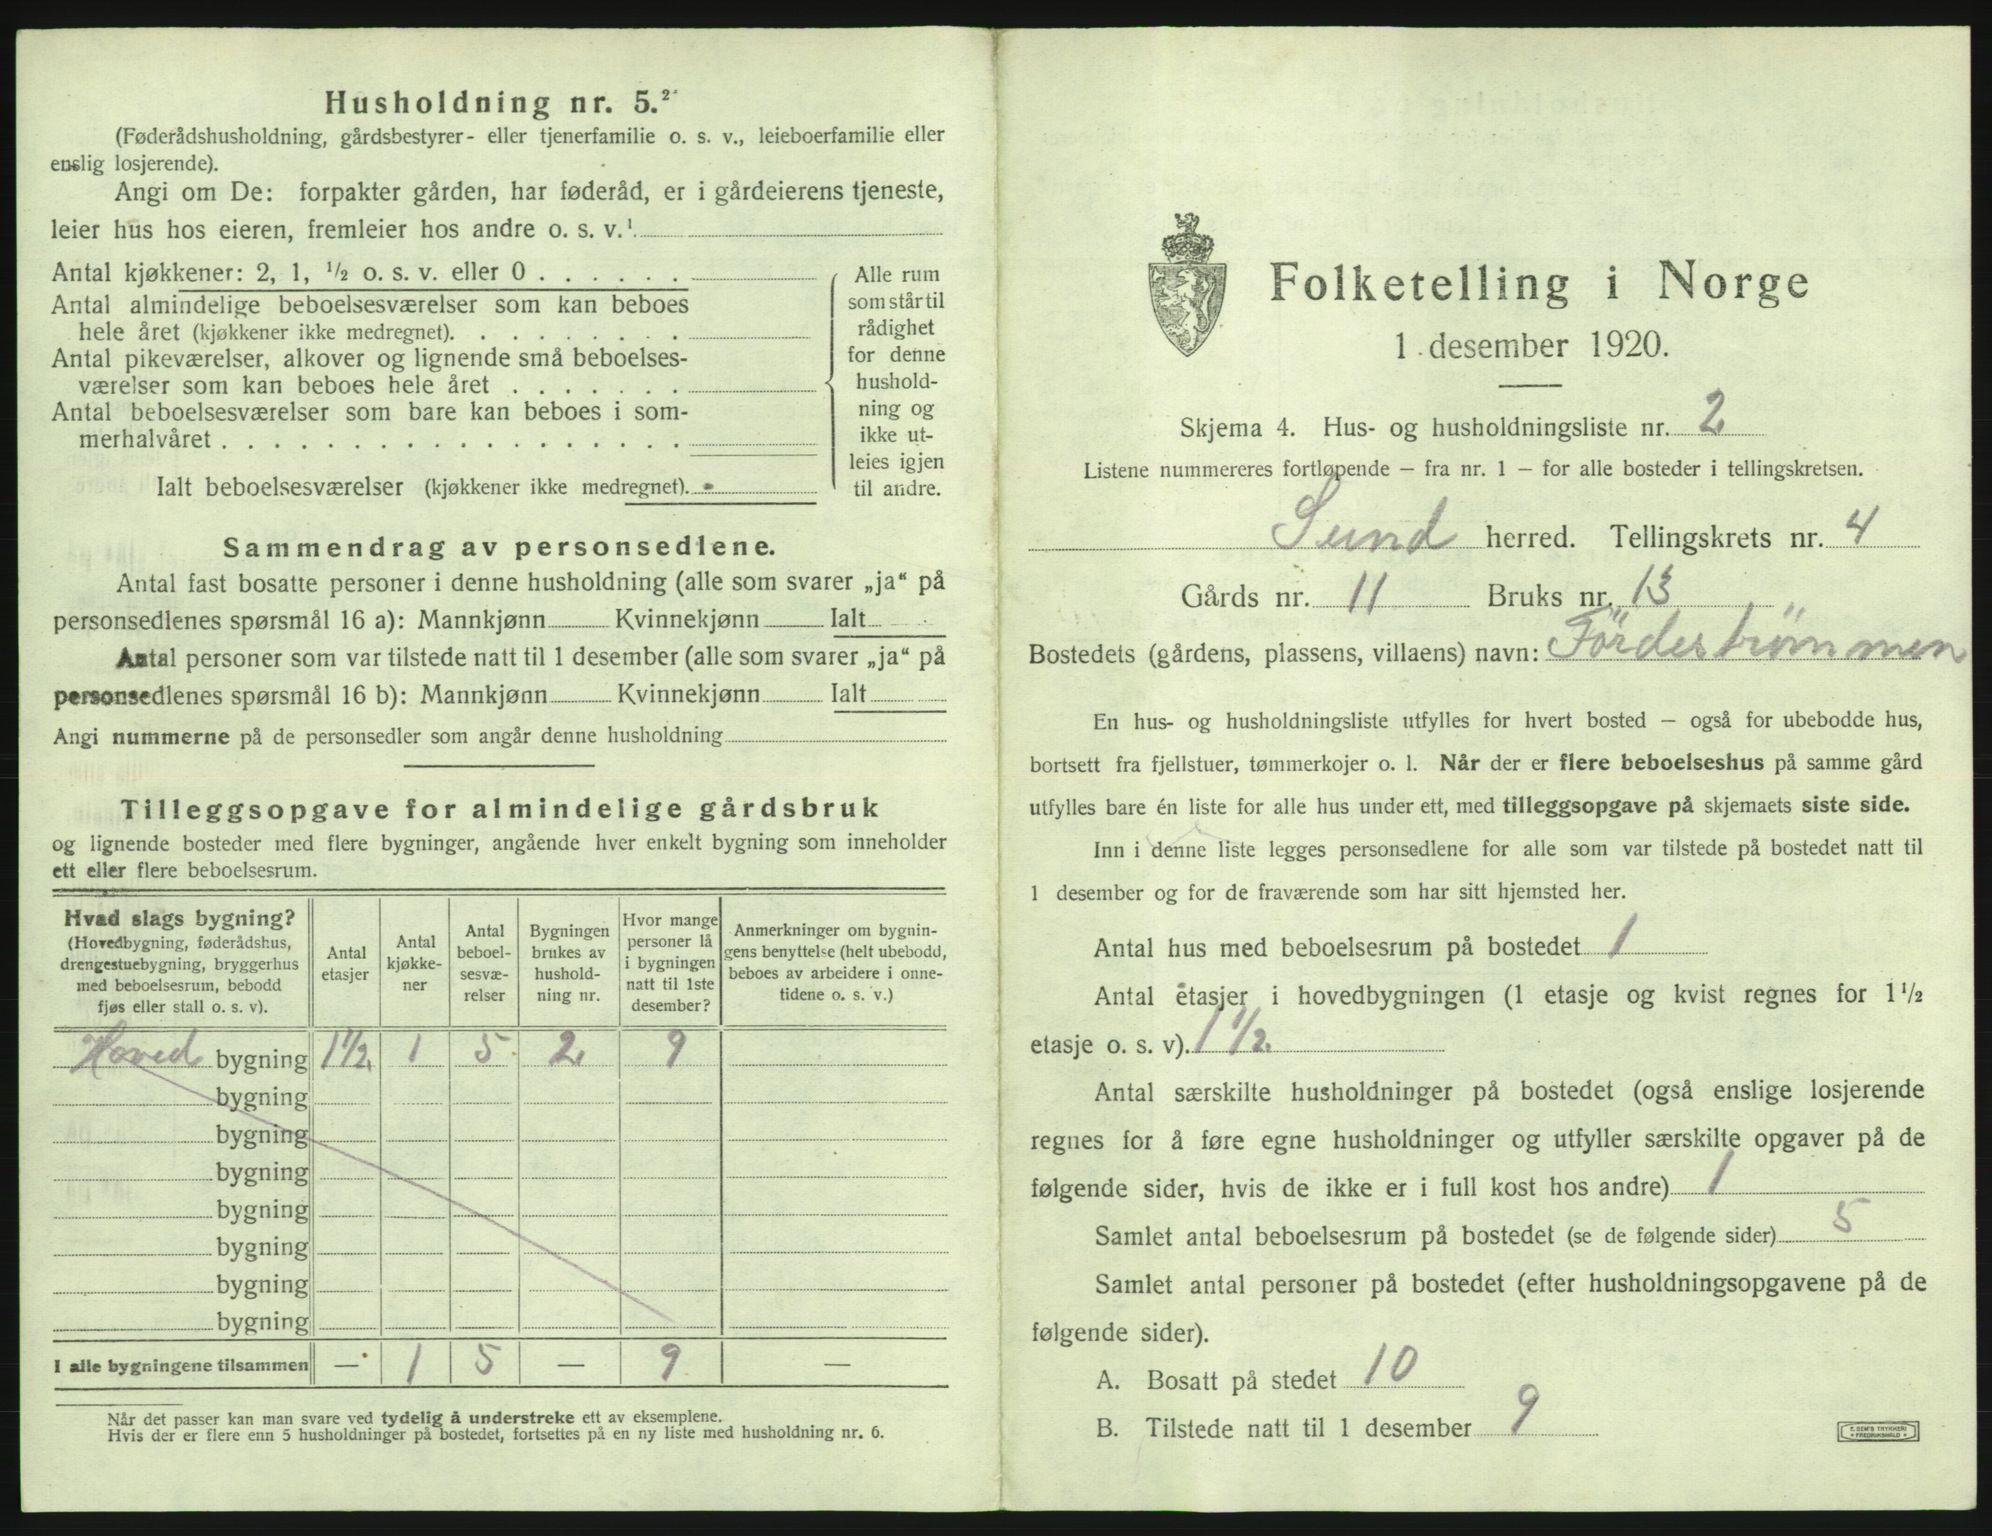 Husholdning nr. 5.²
(Føderådshusholdning, gårdsbestyrer- eller tjenerfamilie o. s. v., leieboerfamilie eller
enslig losjerende).
Angi om De: forpakter gården, har føderåd, er i gårdeierens tjeneste,
leier hus hos eieren, fremleier hos andre o. s. v.¹
Antal kjøkkener: 2, 1, ½ o. s. v. eller 0 . . . . . .
Antal almindelige beboelsesværelser som kan beboes
hele året (kjøkkener ikke medregnet). . . . . . . . .
Antal pikeværelser, alkover og lignende små beboelses-
værelser som kan beboes hele året . . . . . . .
Antal beboelsesværelser som bare kan beboes i som-
merhalvåret . . . . . . . . . . . . . . . . .
Ialt beboelsesværelser (kjøkkener ikke medregnet).
Alle rum
som står til
rådighet
for denne
hushold-
ning og
ikke ut-
leies igjen
til andre.
Sammendrag av personsedlene.
Antal fast bosatte personer i denne husholdning (alle som svarer „ja“ på
personsedlenes spørsmål 16 a): Mannkjønn Kvinnekjønn Ialt
Antal personer som var tilstede natt til 1 desember (alle som svarer „ja“ på
personsedlenes spørsmål 16 b): Mannkjønn Kvinnekjønn Ialt
Angi nummerne på de personsedler som angår denne husholdning
Tilleggsopgave for almindelige gårdsbruk
og lignende bosteder med flere bygninger, angående hver enkelt bygning som inneholder
ett eller flere beboelsesrum.
Hvad slags bygning?
(Hovedbygning, føderådshus,
drengestuebygning, bryggerhus
med beboelsesrum, bebodd
fjøs eller stall o. s. v).
Antal
etasjer
Antal
kjøkke-
ner
Antal
beboel-
sesvæ-
relser
Bygningen
brukes av
hushold-
ning nr.
Hvor mange
personer lå
i bygningen
natt til 1ste
desember?
Anmerkninger om bygnin-
gens benyttelse (helt ubebodd,
beboes av arbeidere i onne-
tidene o. s. v.)
Hoved bygning 1½ 1 5 2 9
bygning
bygning
bygning
bygning
bygning
bygning
bygning
I alle bygningene tilsammen — 1 5 — 9 —
Når det passer kan man svare ved tydelig å understreke ett av eksemplene.
Hvis der er flere enn 5 husholdninger på bostedet, fortsettes på en ny liste med husholdning nr. 6.
Folketelling i Norge
1. desember 1920.
Skjema 4. Hus- og husholdningsliste nr. 2
Listene nummereres fortløpende — fra nr. 1 — for alle bosteder i tellingskretsen.
Sund herred. Tellingskrets nr. 4
Gårds nr. 11 Bruks nr. 13
Bostedets (gårdens, plassens, villaens) navn: Fördestrømmen
En hus- og husholdningsliste utfylles for hvert bosted — også for ubebodde hus,
bortsett fra fjellstuer, tømmerkojer o. l. Når der er flere beboelseshus på samme gård
utfylles bare én liste for alle hus under ett, med tilleggsopgave på skjemaets siste side.
Inn i denne liste legges personsedlene for alle som var tilstede på bostedet natt til
1 desember og for de fraværende som har sitt hjemsted her.
Antal hus med beboelsesrum på bostedet 1
Antal etasjer i hovedbygningen (1 etasje og kvist regnes for 1½
etasje o. s. v). 1½.
Antal særskilte husholdninger på bostedet (også enslige losjerende
regnes for å føre egne husholdninger og utfyller særskilte opgaver på de
følgende sider, hvis de ikke er i full kost hos andre) 1
Samlet antal beboelsesrum på bostedet (se de følgende sider) 5
Samlet antal personer på bostedet (efter husholdningsopgavene på de
følgende sider).
A. Bosatt på stedet 10
B. Tilstede natt til 1 desember 9
E. SEM'S TRYKKERI
• FREDRIKSHALD •